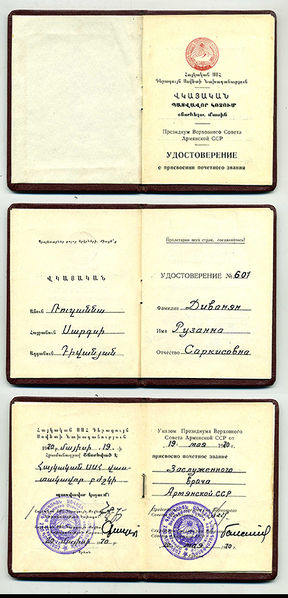 Հայկական ՍՍՀ
Գերագույն Սովետի Նախագահություն
ՎԿԱՅԱԿԱՆ
ՊԱՏՎԱՎՈՐ ԿՈՉՈՒՄ
շնորհելու մասին
Президиум Верховного Совета
Армянской ССР
УДОСТОВЕРЕНИЕ
о присвоении почетного звания
ՎԿԱՅԱԿԱՆ
Անուն Ռուզաննա
Հայրանուն Սարգսի
Ազգանուն Դիվանյան
Пролетарии всех стран, соединяйтесь!
УДОСТОВЕРЕНИЕ № 601
Фамилия Диванян
Имя Рузанна
Отчество Саркисовна
Հայկական ՍՍՀ Գերագույն
Սովետի Նախագահության
1920, մայիսի 19.
Հայկական ՍՍՀ վաս-
տակավոր բժշկի
պատվավոր կոչում
մայիսի 20
Указом Президиума Верховного
Совета Армянской ССР от
19 мая 1920
присвоено почетное звание
Заслуженного
Врача
Армянской ССР